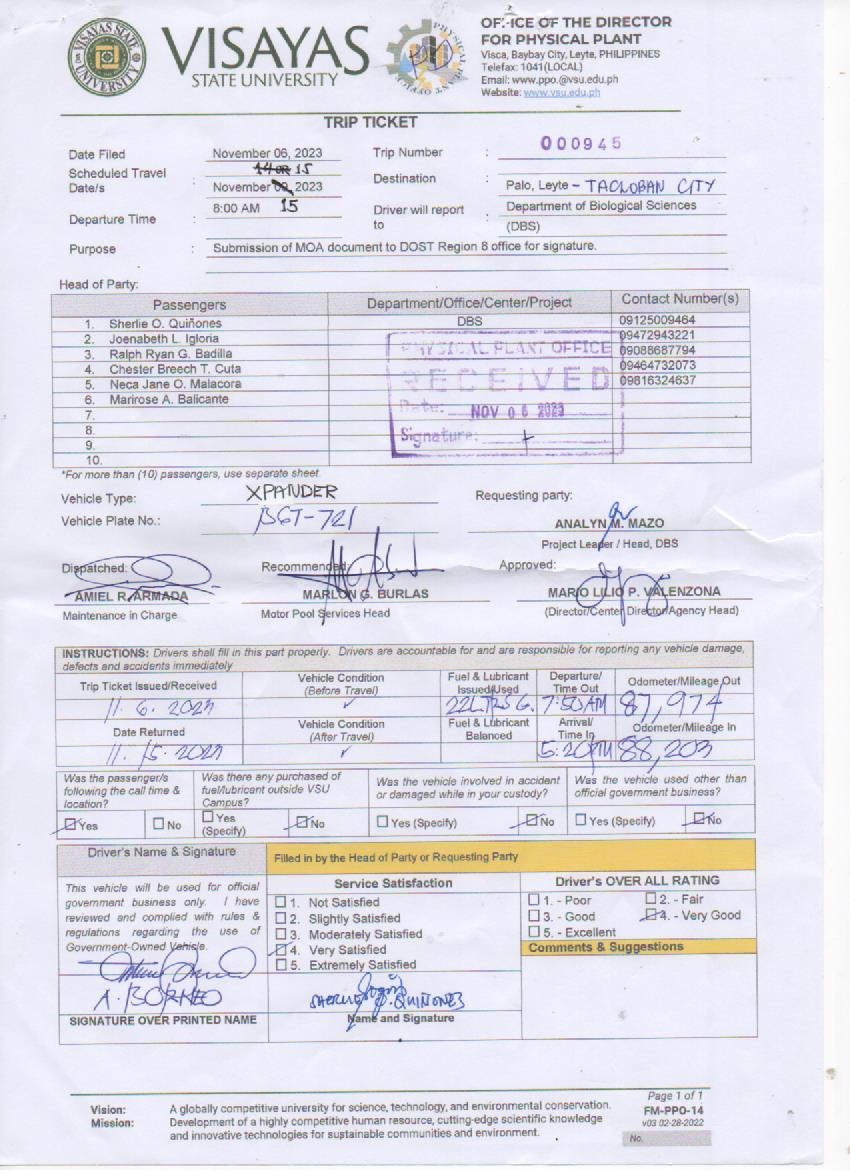 VISAYAS
STATE UNIVERSITY
OFFICE OF THE DIRECTOR
FOR PHYSICAL PLANT
Visca, Baybay City, Leyte, PHILIPPINES
Telefax: 1041(LOCAL)
Email: www.ppo.@vsu.edu.ph
Website: www.vsu.edu.ph
TRIP TICKET
Date Filed November 06, 2023 Trip Number : 000945
Scheduled Travel Date/s : 14 OR 15 November 2023 Destination : Palo, Leyte - TACLOBAN CITY
Departure Time : 8:00 AM 15 Driver will report to : Department of Biological Sciences (DBS)
Purpose : Submission of MOA document to DOST Region 8 office for signature.
Head of Party:
Passengers Department/Office/Center/Project Contact Number(s)
1. Sherlie O. Quiñones DBS 09125009464
2. Joenabeth L. Igloria 09472943221
3. Ralph Ryan G. Badilla 09088687794
4. Chester Breech T. Cuta 09464732073
5. Neca Jane O. Malacora 09816324637
6. Marirose A. Balicante
7.
8.
9.
10.
PHYSICAL PLANT OFFICE
RECEIVED
Date: NOV 06 2023
Signature:
*For more than (10) passengers, use separate sheet.
Vehicle Type: XPANDER Requesting party:
Vehicle Plate No.: BGT-721 ANALYN M. MAZO
Project Leader / Head, DBS
Dispatched: Recommended: Approved:
AMIEL R. ARMADA MARLON G. BURLAS MARIO LILIO P. VALENZONA
Maintenance in Charge Motor Pool Services Head (Director/Center Director/Agency Head)
INSTRUCTIONS: Drivers shall fill in this part properly. Drivers are accountable for and are responsible for reporting any vehicle damage,
defects and accidents immediately
Trip Ticket Issued/Received Vehicle Condition (Before Travel) Fuel & Lubricant Issued/Used Departure/ Time Out Odometer/Mileage Out
11. 6. 2023 ✓ 22LTRS G. 7:50AM 87,974
Date Returned Vehicle Condition (After Travel) Fuel & Lubricant Balanced Arrival/ Time In Odometer/Mileage In
11. 15. 2023 ✓ 5:20PM 88,203
Was the passenger/s following the call time & location? Was there any purchased of fuel/lubricant outside VSU Campus? Was the vehicle involved in accident or damaged while in your custody? Was the vehicle used other than official government business?
☑ Yes ☐ No ☐ Yes (Specify) ☑ No ☐ Yes (Specify) ☑ No ☐ Yes (Specify) ☑ No
Driver's Name & Signature Filled in by the Head of Party or Requesting Party
This vehicle will be used for official
government business only. I have
reviewed and complied with rules &
regulations regarding the use of
Government-Owned Vehicle.
A. BORNEO
SIGNATURE OVER PRINTED NAME
Service Satisfaction
☐ 1. Not Satisfied
☐ 2. Slightly Satisfied
☐ 3. Moderately Satisfied
☑ 4. Very Satisfied
☐ 5. Extremely Satisfied
SHERLIE O. QUIÑONES
Name and Signature
Driver's OVER ALL RATING
☐ 1. - Poor ☐ 2. - Fair
☐ 3. - Good ☑ 4. - Very Good
☐ 5. - Excellent
Comments & Suggestions
Vision: A globally competitive university for science, technology, and environmental conservation.
Mission: Development of a highly competitive human resource, cutting-edge scientific knowledge
and innovative technologies for sustainable communities and environment.
Page 1 of 1
FM-PPO-14
v03 02-28-2022
No.